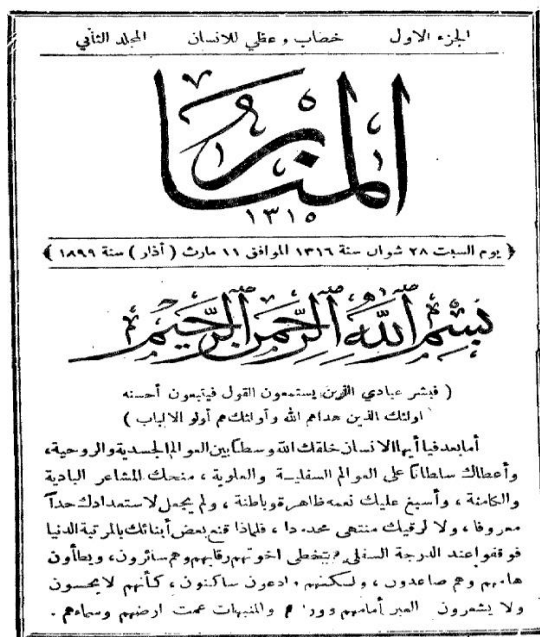 الجزء الاول خضاب , عقلي للانسان المجلد الثاني
المنار
١٣١٥
﴿ يوم السبت ٢٨ شوال سنة ١٣١٦ الموافق ١١ مارث ( أذار ) سنة ١٨٩٩ ﴾
بسم الله الرحمن الرحيم
( فبشر عبادي الذين يستمعون القول فيتبعون أحسنه
اولئك الذين هداهم الله وأولئك هم أولو الالباب )
أما بعد فيا أيها الانسان خلقك الله وسطا بين العوالم الجسدية والروحية ،
وأعطاك سلطانا على العوالم السفلية والعلوية ، منحك المشاعر البادية
والكامنة ، وأسبغ عليك نعمه ظاهرة وباطنة ، ولم يجعل لاستعدادك حداً
معروفا ، ولا لرقيك منتهى محددا ، فلماذا قنع بعض أبنائك بالمرتبة الدنيا
فوقفوا عند الدرجة السفلى يتخطى اخوتهم رقابهم وهم سائرون ، ويطأون
هامهم وهم صاعدون ، ولكنهم وادعون ساكنون ، كأنهم لا يحسون
ولا يشعرون العبر أمامهم والمنبهات عمت ارضهم وسماءهم .